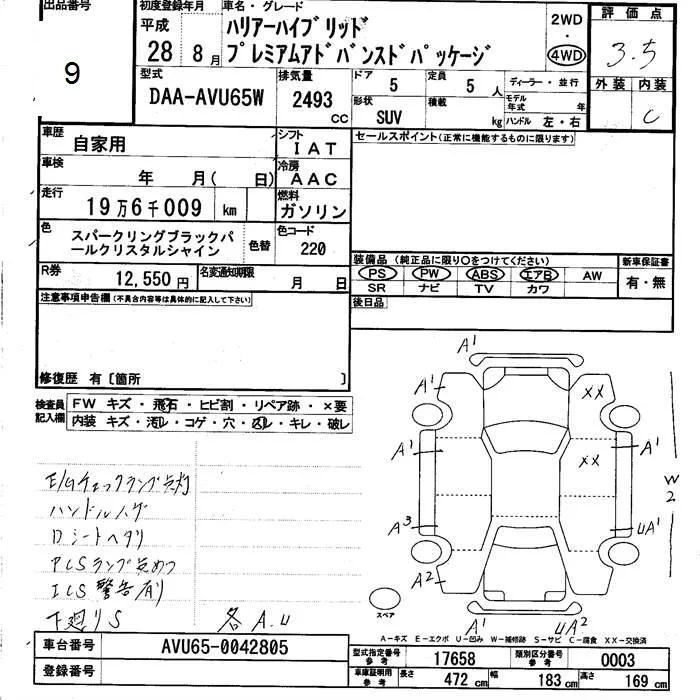 出品番号
9
初度登録年月
平成
28 8月
車名・グレード
ハリアーハイブリッド
プレミアムアドバンスドパッケージ
2WD
・
4WD
評価点
3.5
外装 内装
C
型式
DAA-AVU65W
排気量
2493
cc
ドア
5
定員
5 人
形状
SUV
積載
kg
ディーラー・並行
モデル年式 年
ハンドル 左・右
車歴
自家用
シフト
IAT
車検
年 月( 日)
冷房
AAC
走行
19万6千009 km
燃料
ガソリン
色
スパークリングブラックパ
ールクリスタルシャイン
色替
色コード
220
R券
12,550円
名変通知期限
月 日
セールスポイント(正常に機能するものに限ります)
装備品 (純正品に限り○をつけてください)
PS PW ABS エアB AW
SR ナビ TV カワ
新車保証書
有・無
後日品
注意事項申告欄(不具合内容等は具体的に記入して下さい)
修復歴 有〔箇所 〕
検査員
記入欄
FW キズ・飛石・ヒビ割・リペア跡・×要
内装 キズ・汚れ・コゲ・穴・スレ・キレ・破レ
E/Gチェックランプ点灯
ハンドルハゲ
Dシートヘタリ
PCSランプ点めつ
ICS警告有り
下廻りS
各A.U
A1
A1
XX
A1
XX
A1
W2
A3
UA1
A2
A1
UA2
スペア
A-キズ E-エクボ U-凹み W-補修跡 S-サビ C-腐食 XX-交換済
車台番号
AVU65-0042805
登録番号
型式指定番号
参考
17658
類別区分番号
参考
0003
車庫証明用
参考
長さ
472 cm
幅
183 cm
高さ
169 cm